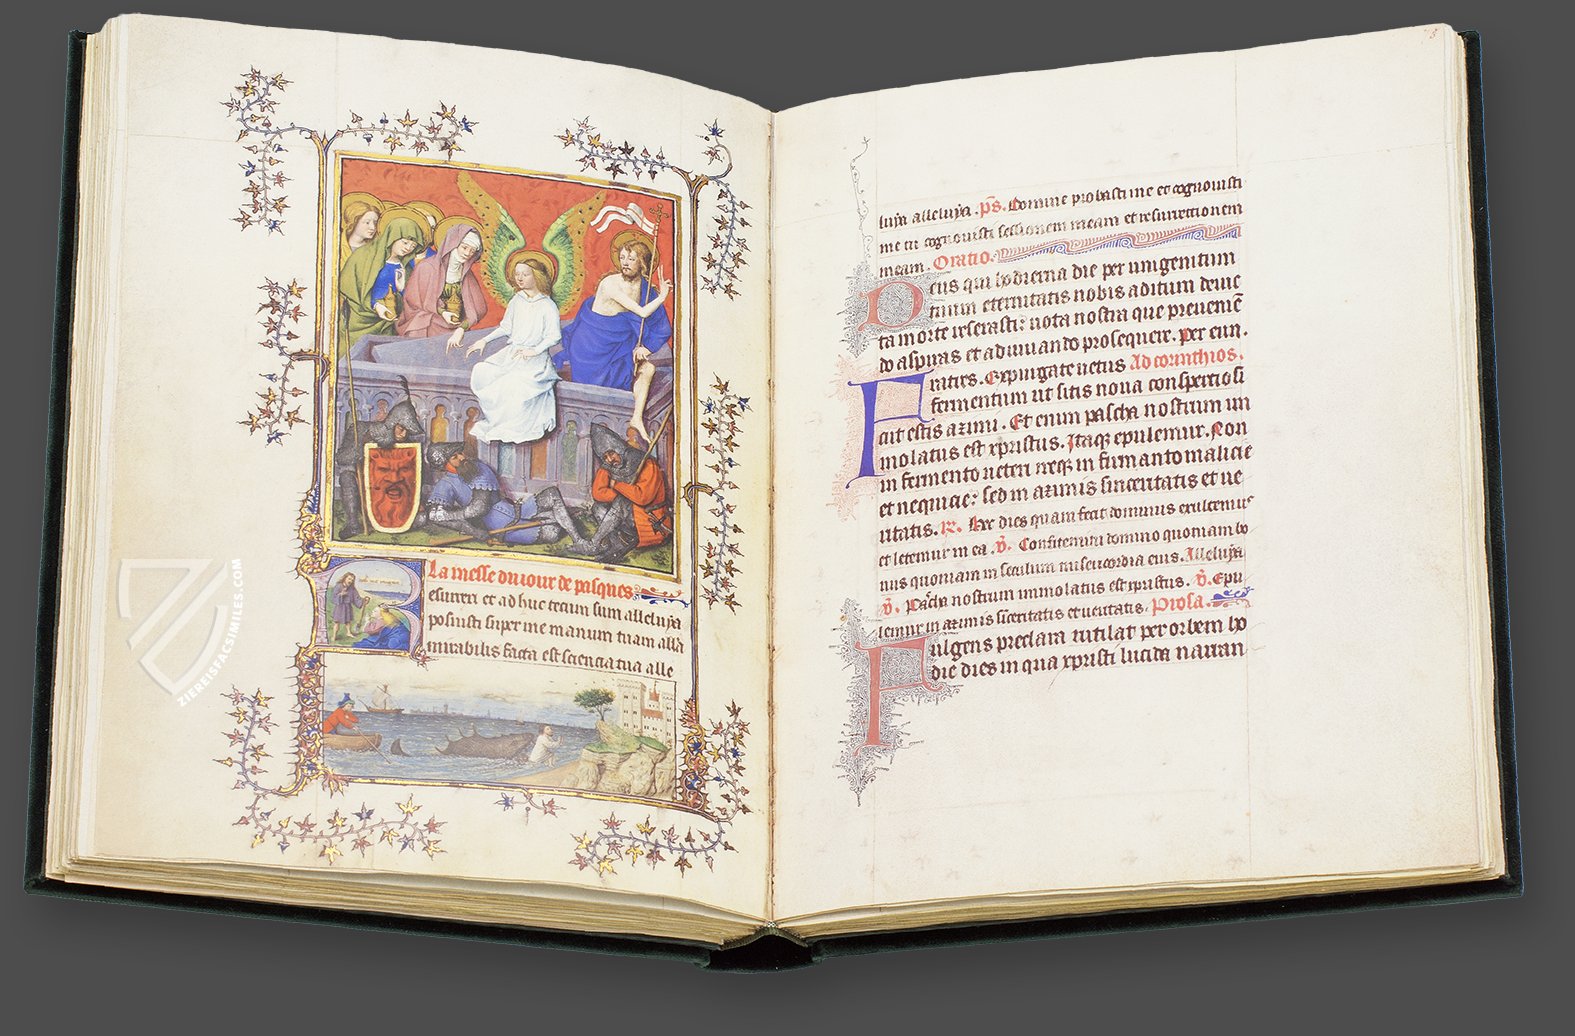 La messe du iour de pasques
Resurrexi et ad huc tecum sum alleluya
posuisti super me manum tuam alla
mirabilis facta est sciencia tua alle
luya alleluya. ps. Domine probasti me et cognouisti
me tu cognouisti sessionem meam et resurrectionem
meam. Oratio.
Deus qui hodierna die per unigenitum
tuum eternitatis nobis aditum deuic
ta morte reserasti: uota nostra que preueniē
do aspiras et adiuuando prosequere. Per eun.
Fratres. Expurgate uetus Ad corinthios.
fermentum ut sitis noua conspersio si
cut estis azimi. Et enim pascha nostrum im
molatus est xpristus. Itaq epulemur. Non
in fermento ueteri neq in firmanto malicie
et nequicie: sed in azimis sinceritatis et ue
ritatis. R. Hec dies quam fecit dominus exultemus
et letemur in ea. V. Confitemini domino quoniam bo
nus quoniam in seculum misericordia eius. Alleluya
V. Pascha nostrum immolatus est xpristus. V. Epu
lemur in azimis sinceritatis et ueritatis. Prosa.
Fulgens preclara rutilat per orbem ho
die dies in qua xpristi lucida narran
ZIEREISFACSIMILES.COM